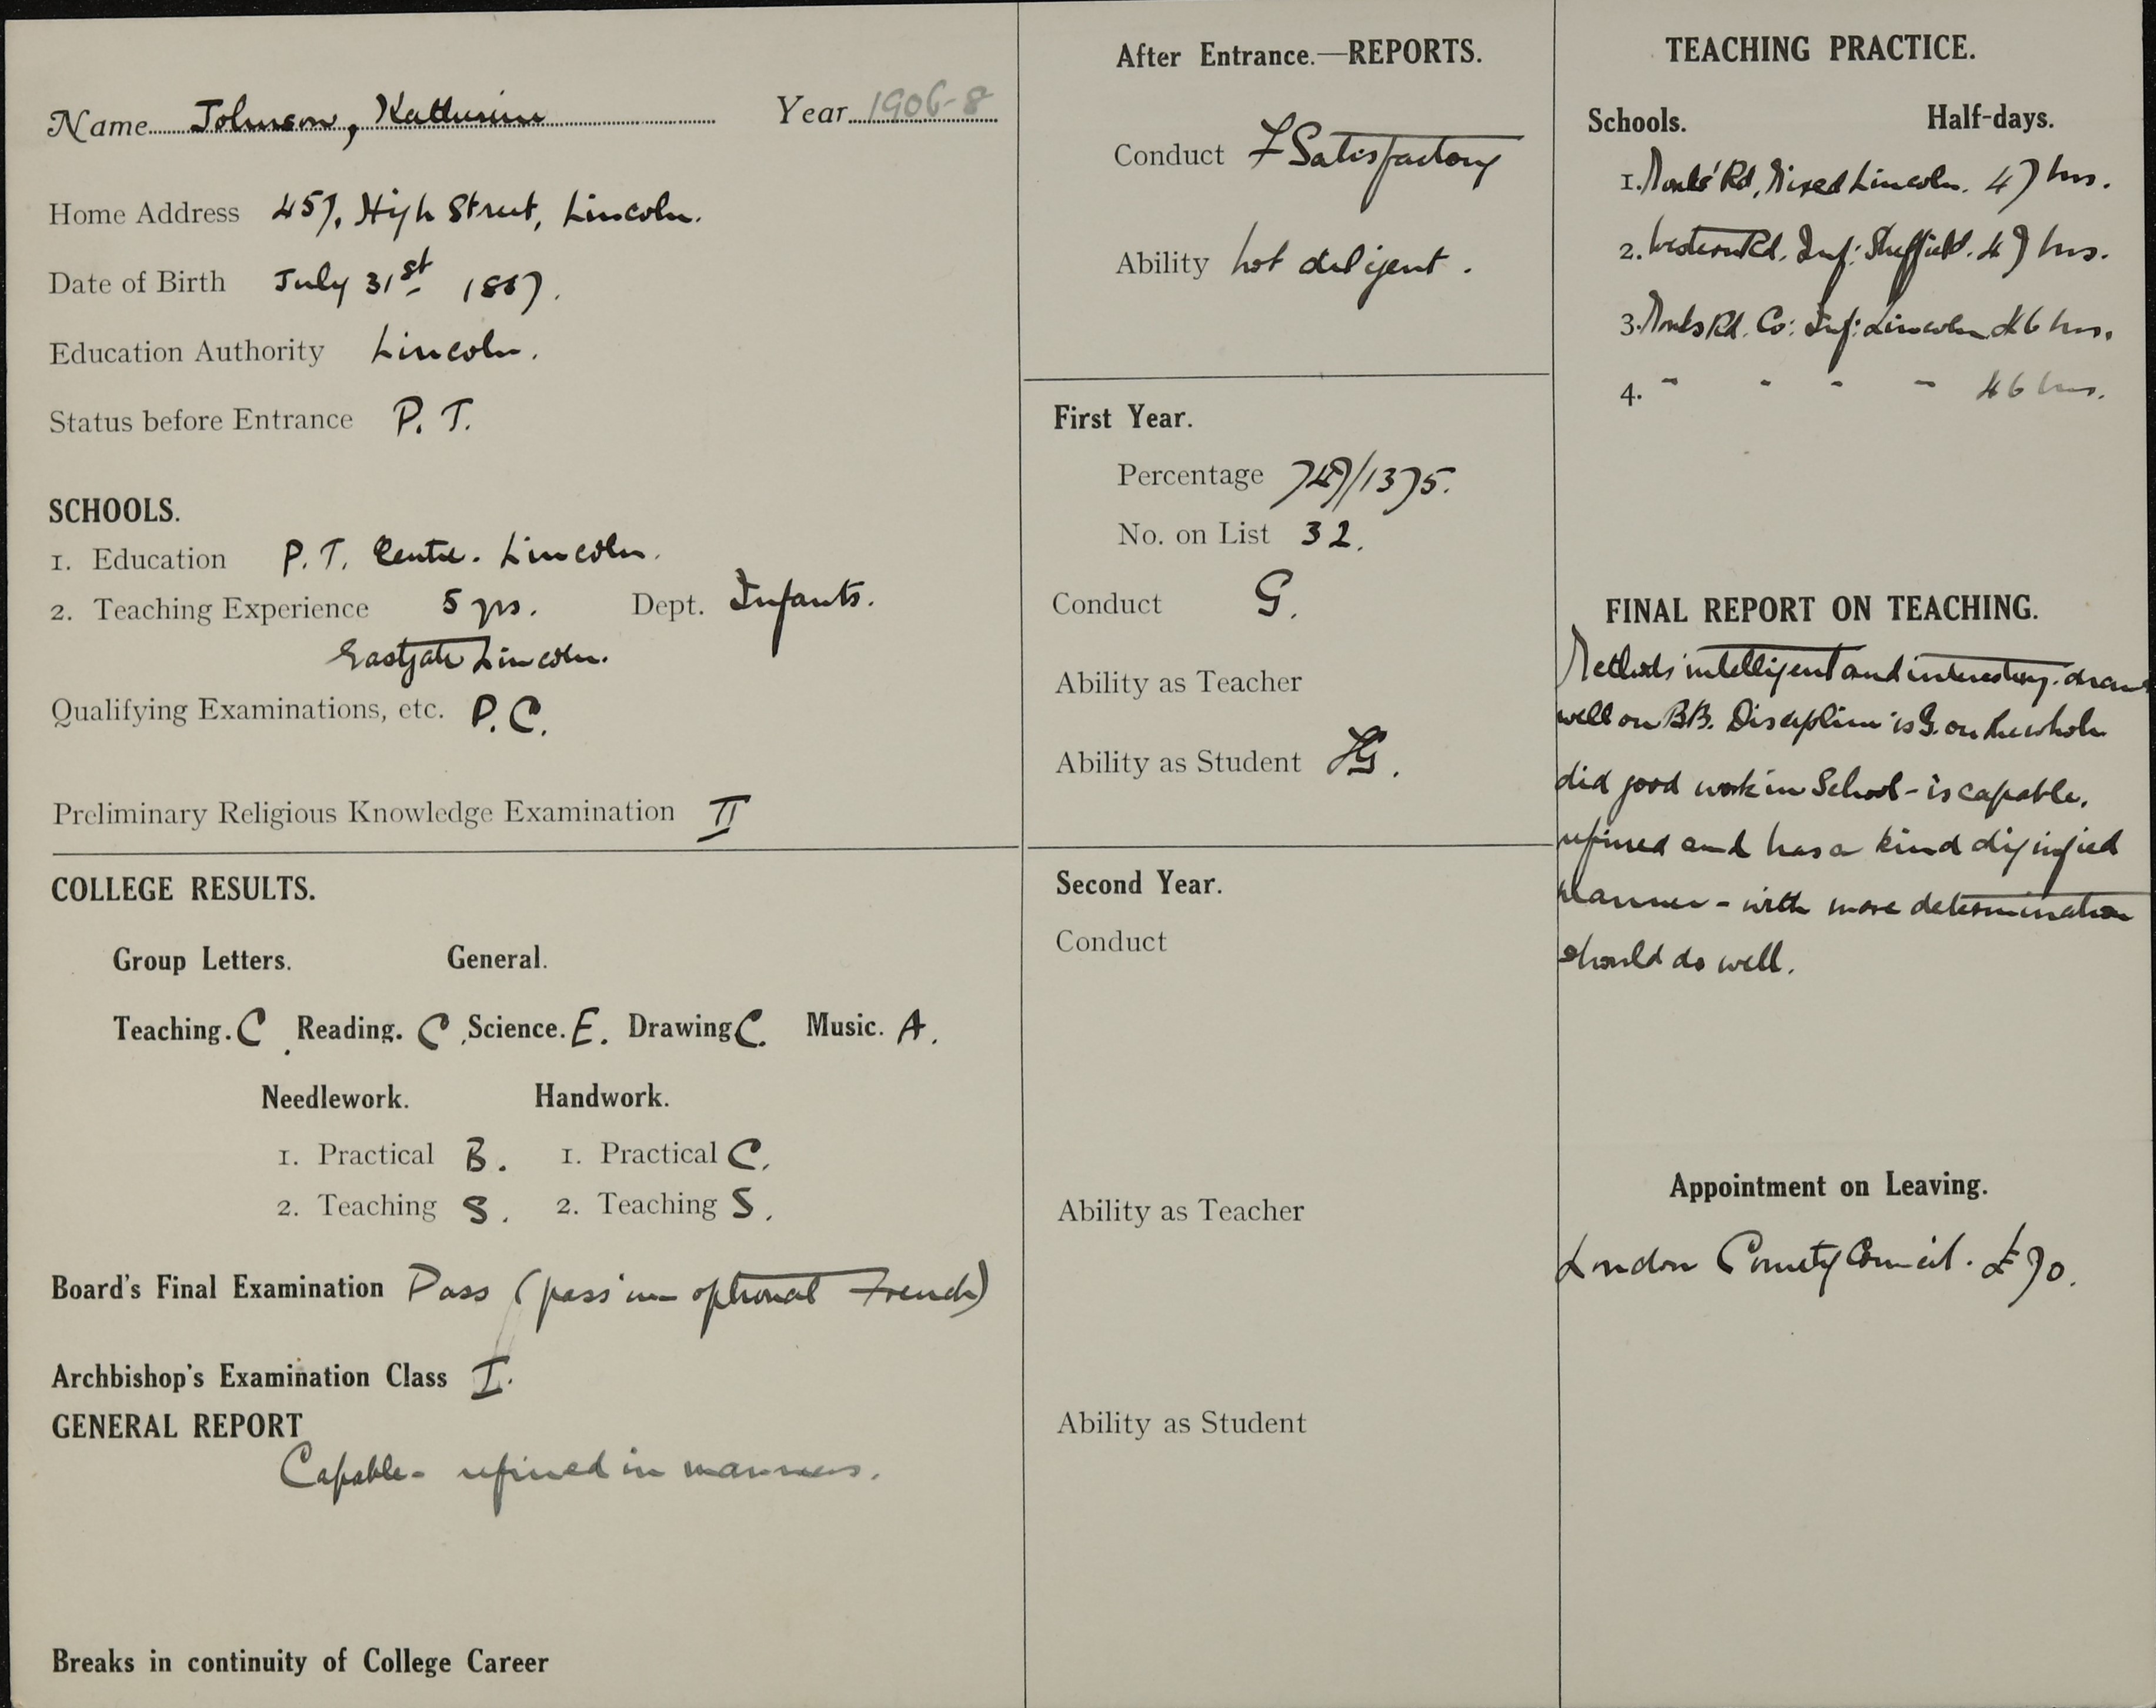 Name Johnson, Katherine Year 1906-8
Home Address 457, High Street, Lincoln.
Date of Birth July 31st 1887.
Education Authority Lincoln.
Status before Entrance P. T.
SCHOOLS.
1. Education P. T. Centre. Lincoln.
2. Teaching Experience 5 yrs. Dept. Infants.
Eastgate Lincoln.
Qualifying Examinations, etc. P.C.
Preliminary Religious Knowledge Examination II
COLLEGE RESULTS.
Group Letters. General.
Teaching. C. Reading. C. Science. E. Drawing C. Music. A.
Needlework. Handwork.
1. Practical B. 1. Practical C.
2. Teaching S. 2. Teaching S.
Board's Final Examination Pass (pass in optional French)
Archbishop's Examination Class I.
GENERAL REPORT
Capable - refined in manners.
Breaks in continuity of College Career
After Entrance.—REPORTS.
Conduct F Satisfactory
Ability not diligent.
First Year.
Percentage 747/1375.
No. on List 32.
Conduct G.
Ability as Teacher
Ability as Student FG.
Second Year.
Conduct
Ability as Teacher
Ability as Student
TEACHING PRACTICE.
Schools. Half-days.
1. Monks' Rd, Mixed Lincoln. 47 hrs.
2. Western Rd. Inf: Sheffield. 47 hrs.
3. Monks Rd. Co: Inf: Lincoln 46 hrs.
4. " " " " 46 hrs.
FINAL REPORT ON TEACHING.
Methods intelligent and interesting. draws
well on BB. Discipline is G. on the whole
did good work in School - is capable,
refined and has a kind dignified
manner - with more determination
should do well.
Appointment on Leaving.
London County Council. £70.